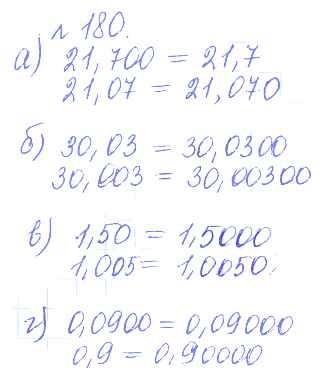 № 180.
а) 21,700 = 21,7
21,07 = 21,070
б) 30,03 = 30,0300
30,003 = 30,00300
в) 1,50 = 1,5000
1,005 = 1,0050.
г) 0,0900 = 0,09000
0,9 = 0,90000